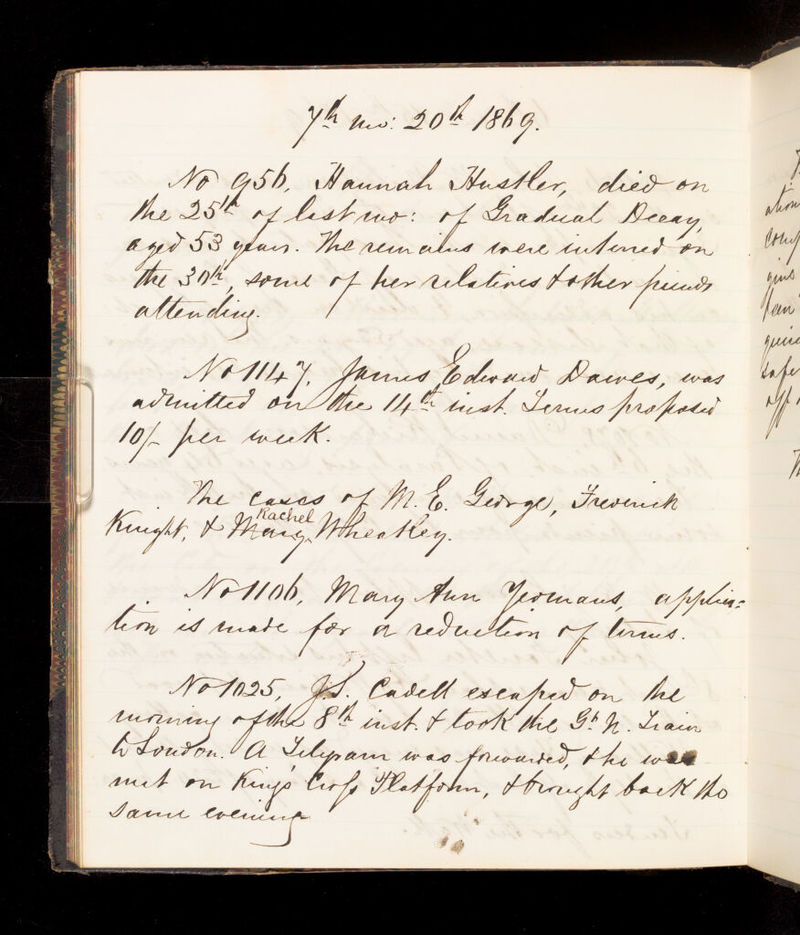 7th mo: 20th 1869.
No 956, Hannah Hustler, died on
the 25th of last mo: of Gradual Decay,
aged 53 years. The remains were interred on
the 30th, some of her relatives & other friends
attending.
No 1147, James Edward Dawes, was
admitted on the 14th inst. Terms proposed
10/- per week.
The cases of M. E. George, Frederick
Rachel
Knight, & Mary Wheatley.
No 1106, Mary Ann Yeomans, applica=
tion is made for a reduction of terms.
No 1025, J.S. Cadell escaped on the
morning of the 8th inst. & took the Gt. N. Train
to London. A Telegram was forwarded, & he was
met on King's Cross Platform, & brought back the
same evening